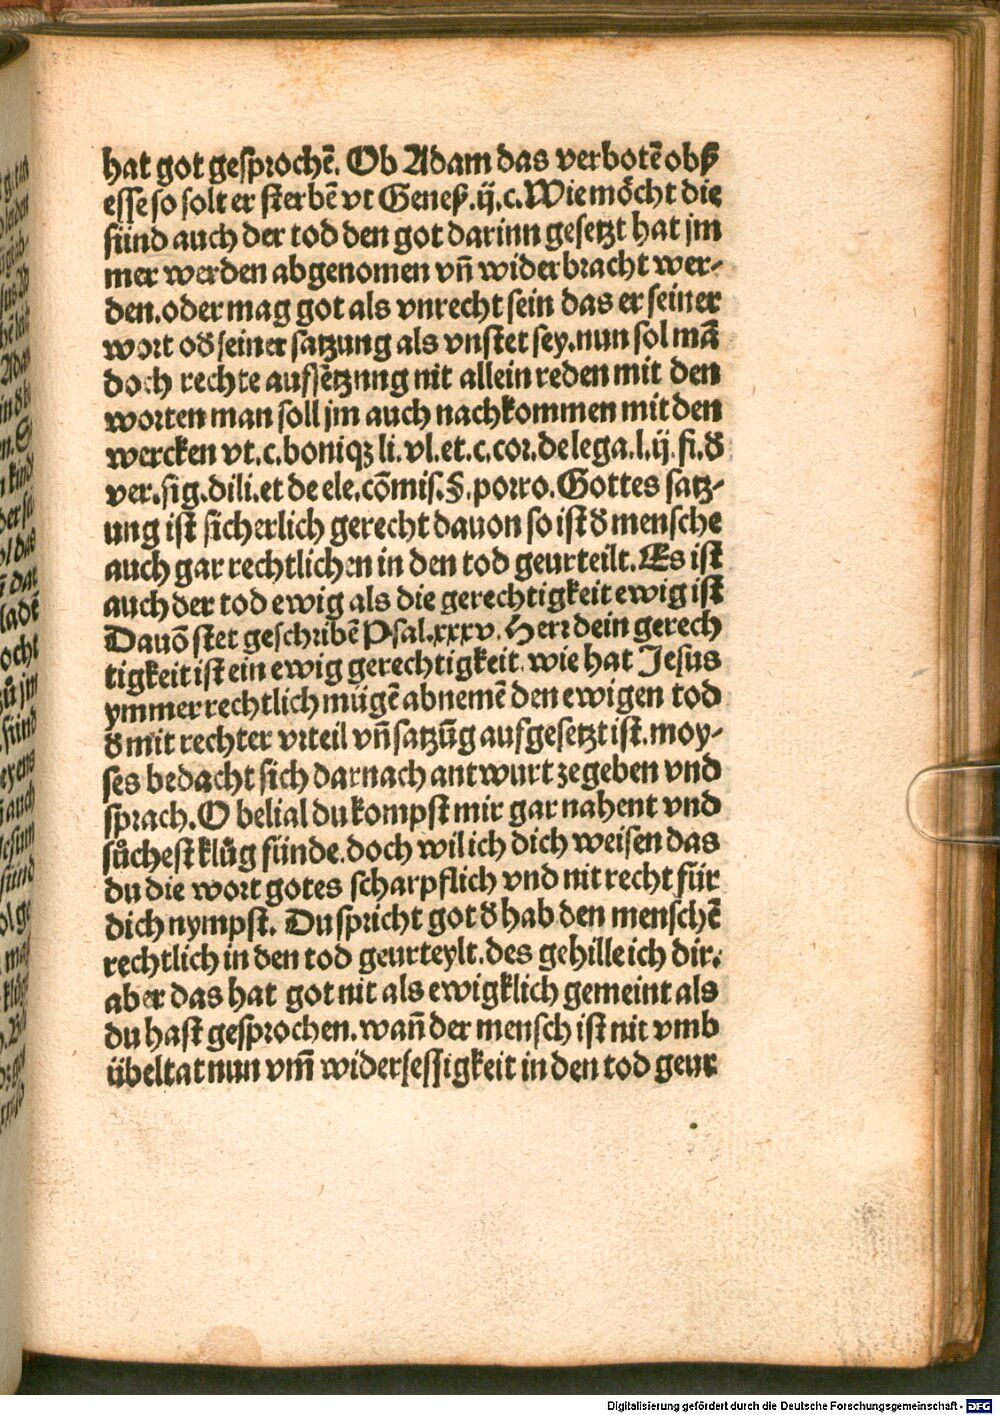 hat got gesprochē. Ob Adam das verbotē obß
esse so solt er sterbē vt Geneß.ij.c.Wie möcht die
sünd auch der tod den got darinn gesetzt hat jm
mer werden abgenomen vn̄ widerbracht wer-
den.oder mag got als vnrecht sein das er seiner
wort oď seiner satzung als vnstet sey.nun sol mā
doch rechte aufsetzung nit allein reden mit den
worten man soll jm auch nachkommen mit den
wercken vt.c.boniqꝫ li.vl.et.c.cor.de lega.l.ij.fi.ď
ver.sig.dili.et de ele.cōmis.§.porro.Gottes satz-
ung ist sicherlich gerecht dauon so ist ď mensche
auch gar rechtlichen in den tod geurteilt.Es ist
auch der tod ewig als die gerechtigkeit ewig ist
Dauō stet geschribē Psal.xxxv. Herr dein gerech
tigkeit ist ein ewig gerechtigkeit.wie hat Jesus
ymmer rechtlich mügē abnemē den ewigen tod
ď mit rechter vrteil vn̄ satzūg aufgesetzt ist.moy-
ses bedacht sich darnach antwurt zegeben vnd
sprach.O belial du kompst mir gar nahent vnd
sůchest klůg fünde.doch wil ich dich weisen das
du die wort gotes scharpflich vnd nit recht für
dich nympst. Du spricht got ď hab den menschē
rechtlich in den tod geurteylt.des gehille ich dir.
aber das hat got nit als ewigklich gemeint als
du hast gesprochen.wan̄ der mensch ist nit vmb
übeltat nun vm̄ widersessigkeit in den tod geur
Digitalisierung gefördert durch die Deutsche Forschungsgemeinschaft - DFG